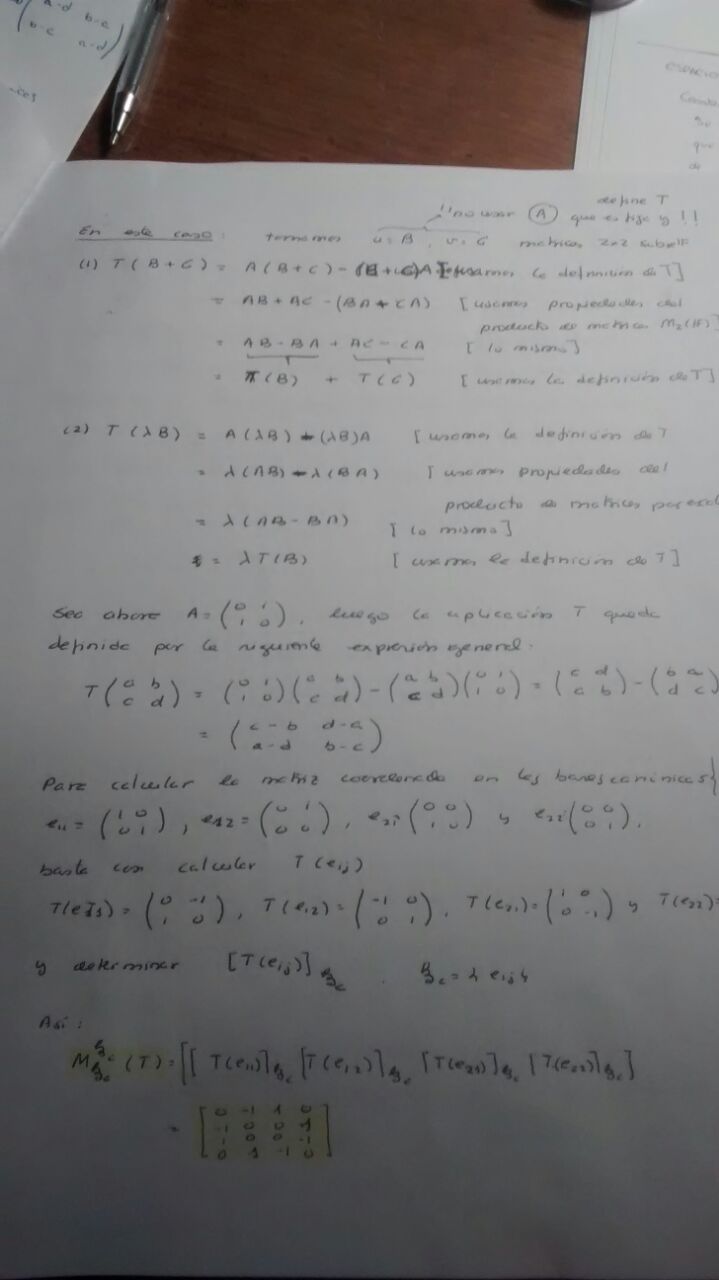 a-d b-c
b-c a-d
define T
!! no usar (A) que es fija y !!
En este caso: tomemos u=B, v=C matrices 2x2 sobre IF
(1) T(B+C) = A(B+C) - (B+C)A [usamos la definición de T]
= AB + AC - (BA + CA) [usamos propiedades del
producto de matrices M₂(IF)]
= AB - BA + AC - CA [lo mismo]
= T(B) + T(C) [usamos la definición de T]
(2) T(λB) = A(λB) - (λB)A [usamos la definición de T
= λ(AB) - λ(BA) [usamos propiedades del
producto de matrices por escal
= λ(AB - BA) [lo mismo]
= λT(B) [usamos la definición de T]
Sea ahora A = (0 1; 1 0), luego la aplicación T queda
definida por la siguiente expresión general:
T(a b; c d) = (0 1; 1 0)(a b; c d) - (a b; c d)(0 1; 1 0) = (c d; a b) - (b a; d c)
= (c-b d-a; a-d b-c)
Para calcular la matriz coordenada en las bases canónicas
e₁₁ = (1 0; 0 1), e₁₂ = (0 1; 0 0), e₂₁ (0 0; 1 0) y e₂₂ (0 0; 0 1),
basta con calcular T(eᵢⱼ)
T(e₁₁) = (0 -1; 1 0), T(e₁₂) = (-1 0; 0 1), T(e₂₁) = (1 0; 0 -1) y T(e₂₂) =
y determinar [T(eᵢⱼ)]_Bc . Bc = { eᵢⱼ }
Así:
M_Bc^Bc (T) = [[T(e₁₁)]_Bc [T(e₁₂)]_Bc [T(e₂₁)]_Bc [T(e₂₂)]_Bc]
= [0 -1 1 0
-1 0 0 1
1 0 0 -1
0 1 -1 0]